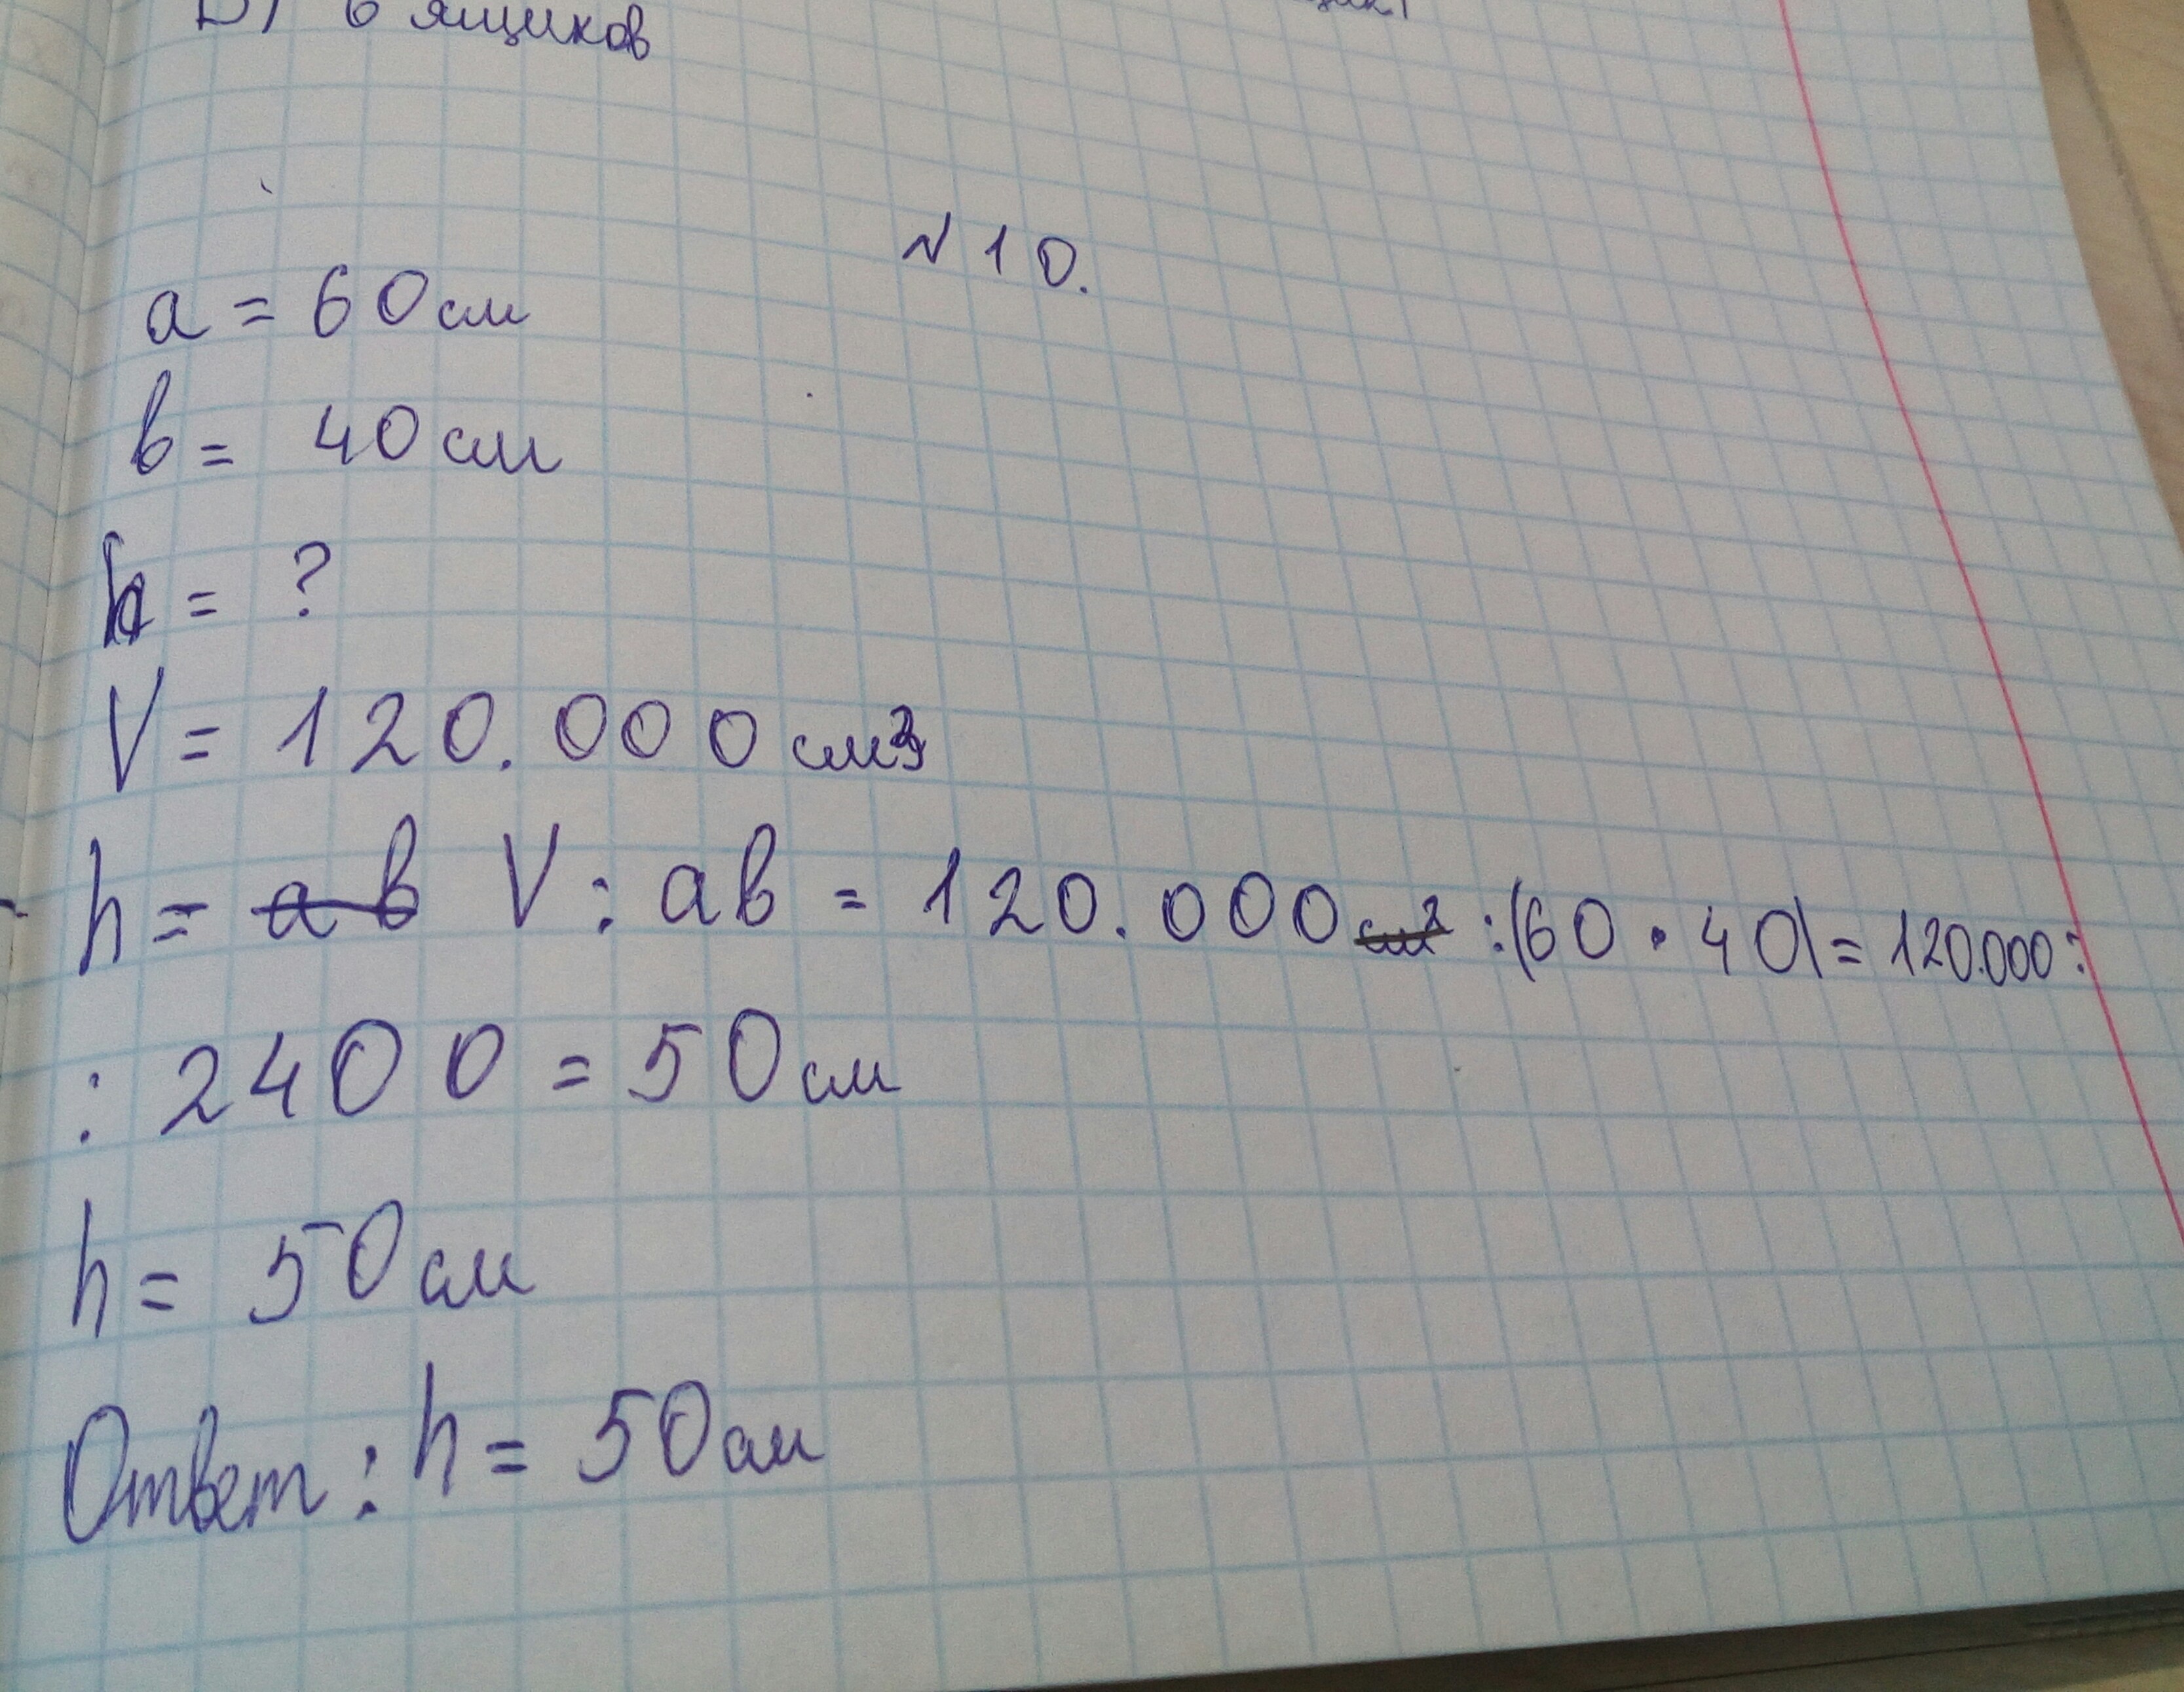 6 ящиков
N 10.
a = 60 см
b = 40 см
h = ?
V = 120.000 см3
h = ab V : ab = 120.000 см2 :(60 · 40) = 120.000 :
: 2400 = 50 см
h = 50 см
Ответ : h = 50 см